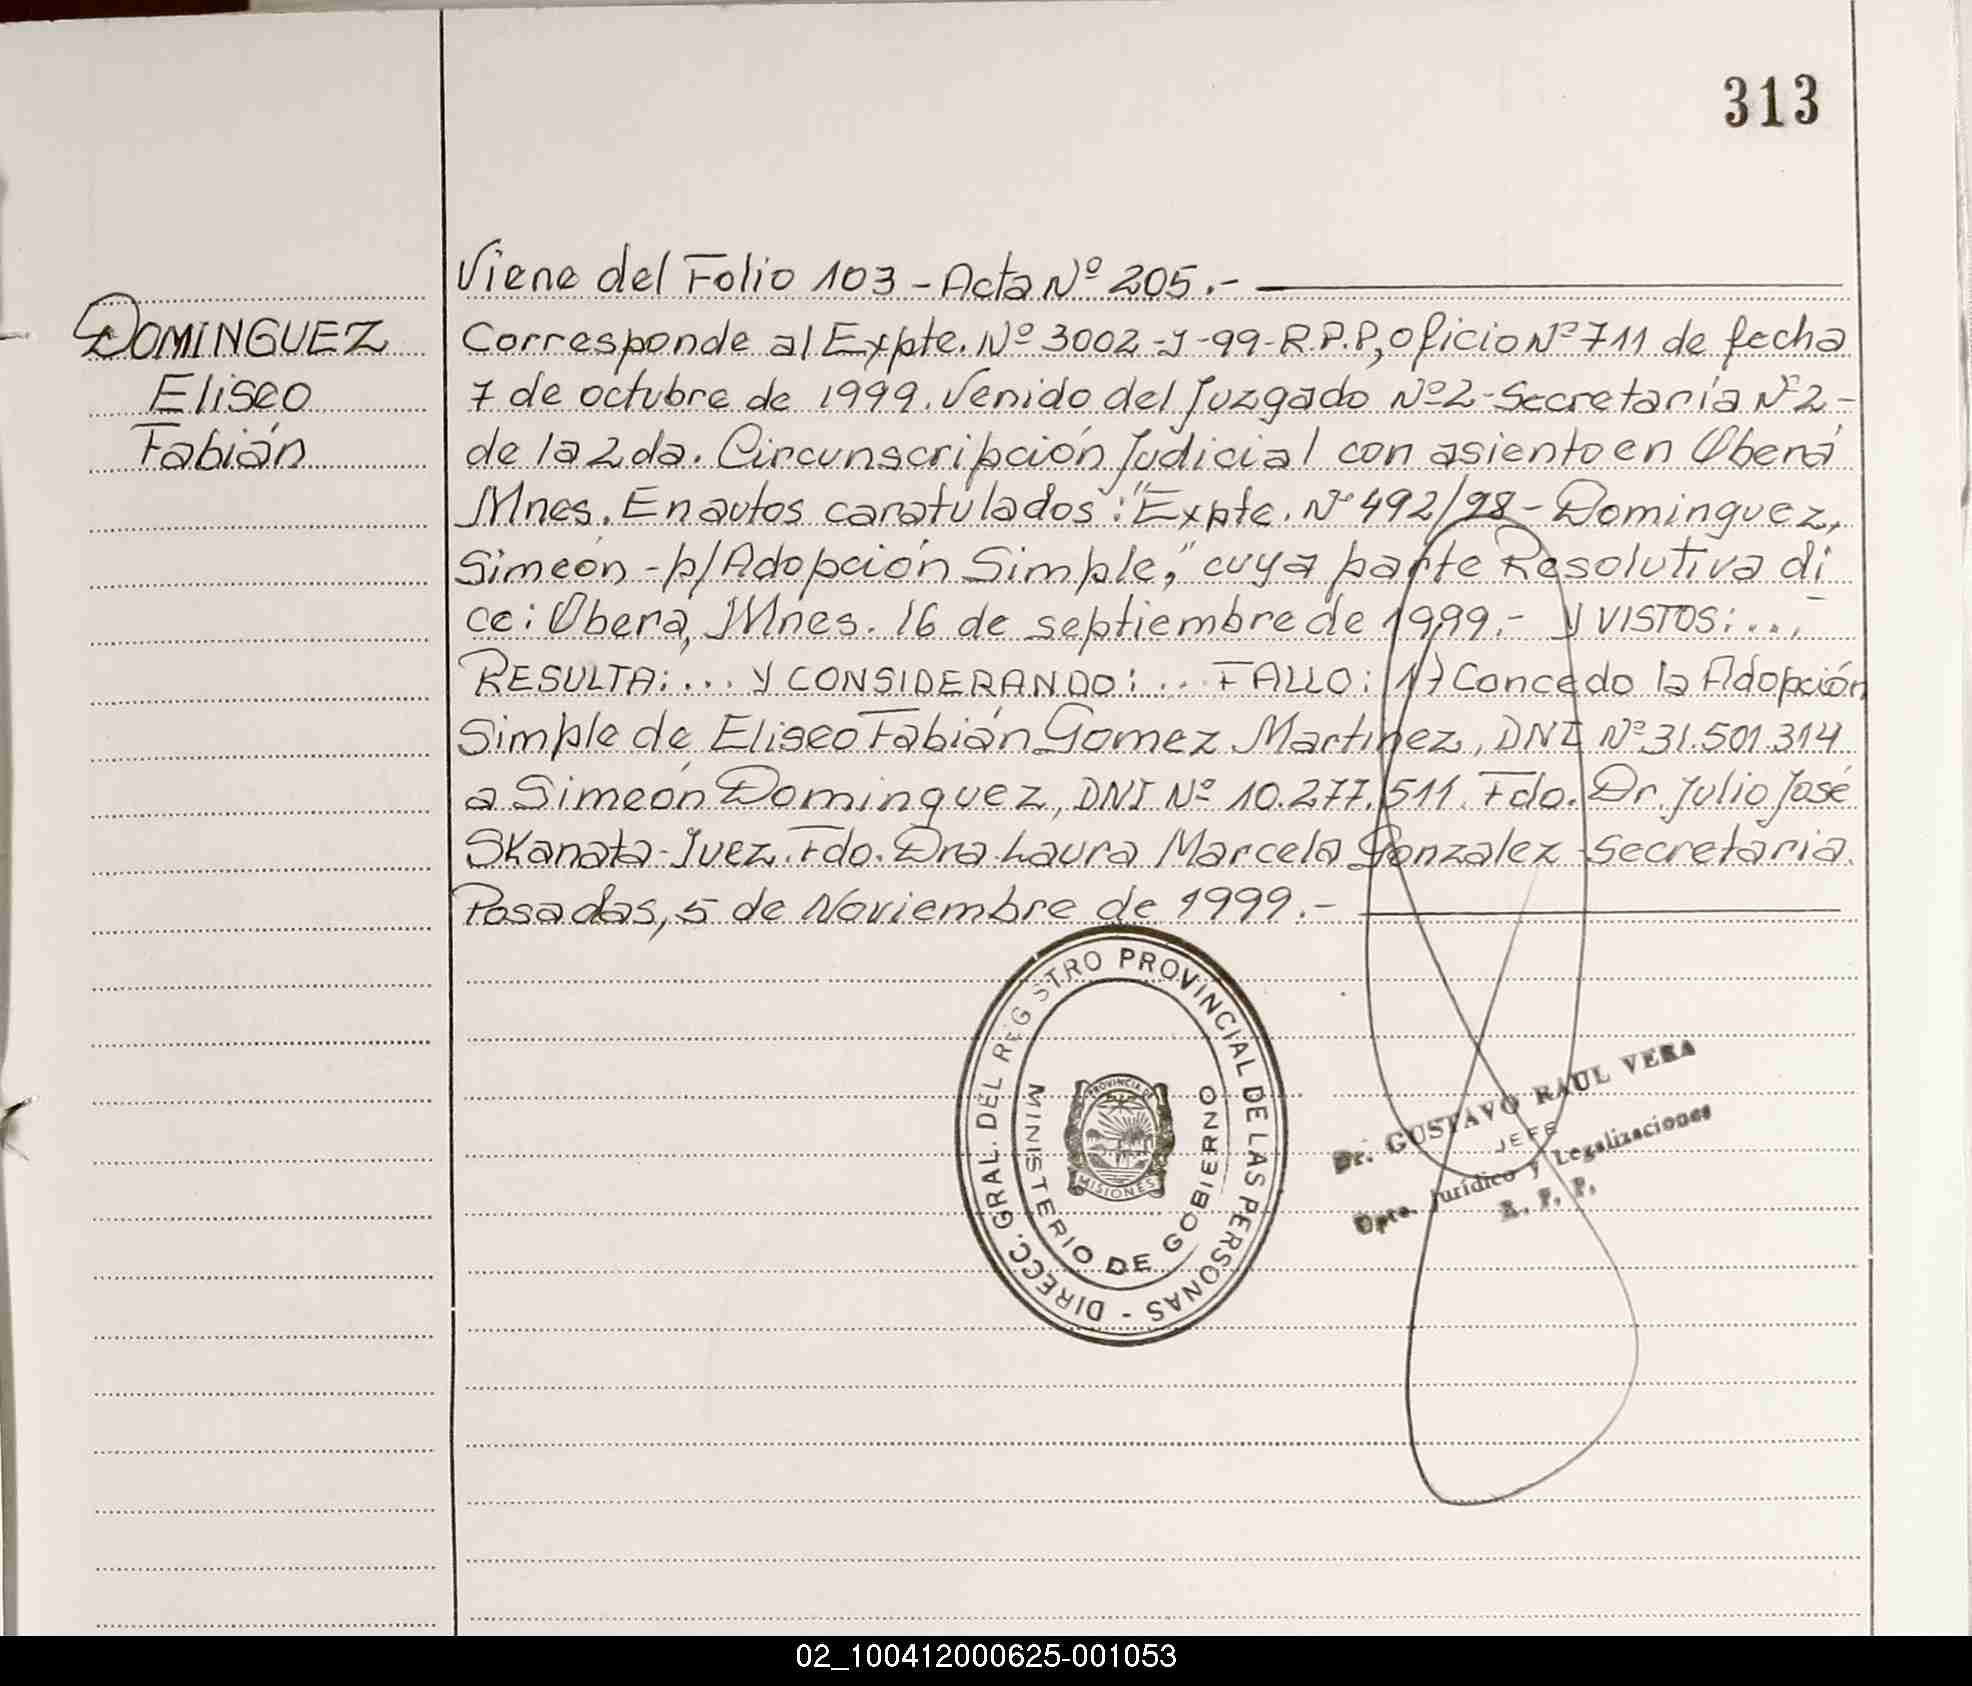 313
Viene del Folio 103 - Acta Nº 205.-
DOMINGUEZ
Eliseo
Fabián
Corresponde al Expte. Nº 3002-J-99-R.P.P, oficio Nº 711 de fecha
7 de octubre de 1999. Venido del Juzgado Nº2-Secretaría Nº2-
de la 2da. Circunscripción Judicial con asiento en Oberá
Mnes. En autos caratulados: "Expte. Nº 492/98 - Dominguez,
Simeón - p/Adopción Simple," cuya parte Resolutiva di
ce: Oberá, Mnes. 16 de septiembre de 1999.- Y VISTOS:...,
RESULTA:... Y CONSIDERANDO:... FALLO: 1) Concedo la Adopción
Simple de Eliseo Fabián Gomez Martinez, DNI Nº 31.501.314
a Simeón Dominguez, DNI Nº 10.277.511. Fdo. Dr. Julio José
Skanata-Juez. Fdo. Dra. Laura Marcela Gonzalez-Secretaria.
Posadas, 5 de Noviembre de 1999.-
DIRECC. GRAL. DEL REGISTRO PROVINCIAL DE LAS PERSONAS -
MINISTERIO DE GOBIERNO
PROVINCIA DE
MISIONES
Dr. GUSTAVO RAUL VERA
JEFE
Dpto. Jurídico y Legalizaciones
R. P. P.
02_100412000625-001053